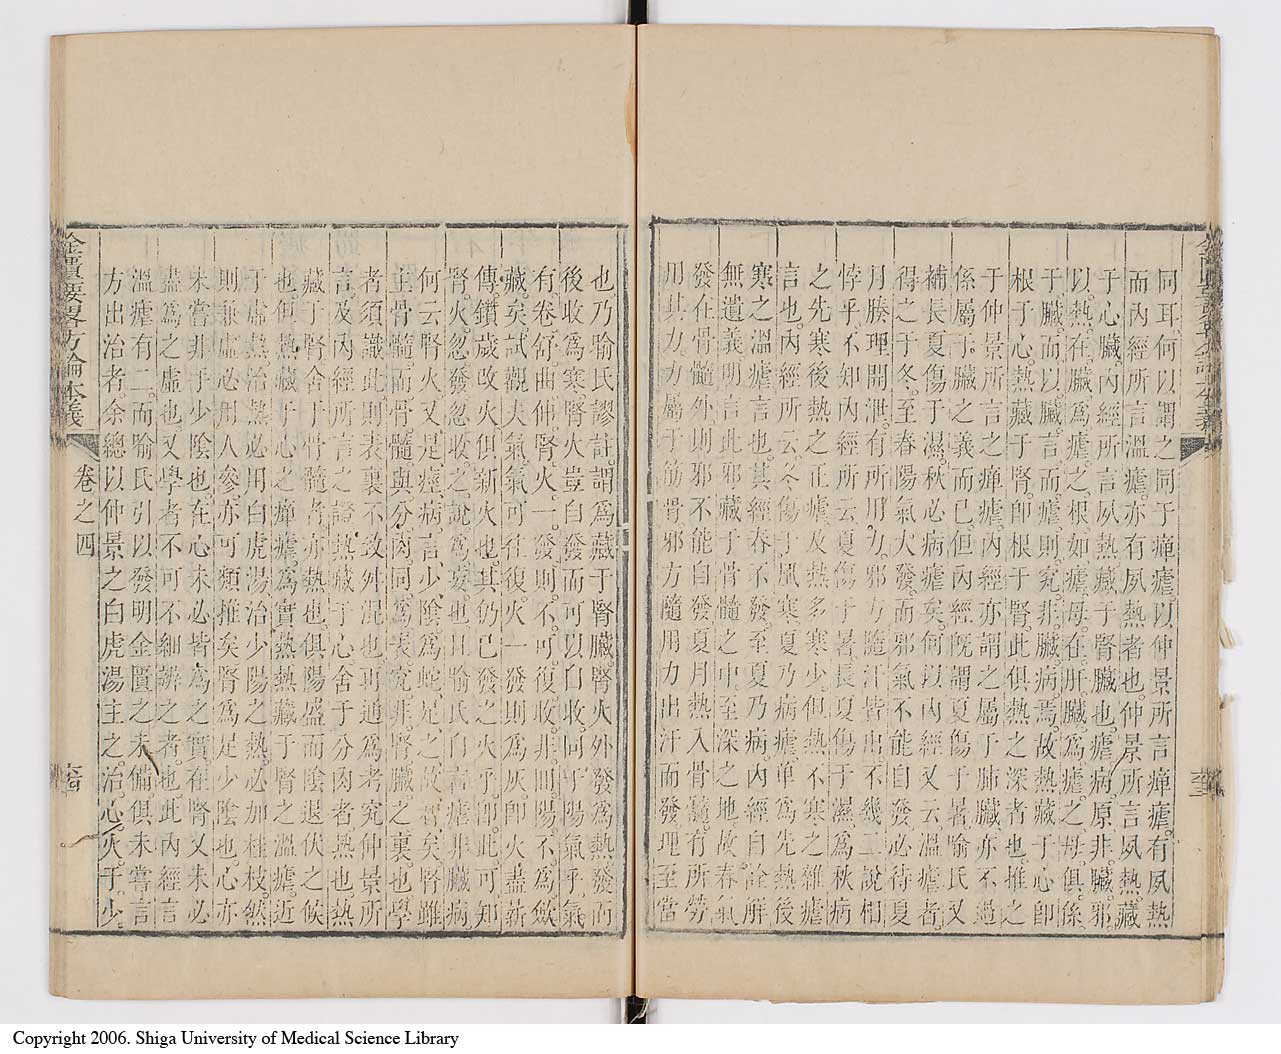 同耳何以謂之同于癉瘧以仲景所言癉瘧有夙熱
而內經所言溫瘧亦有夙熱者也仲景所言夙熱藏
于心臟內經所言夙熱藏于腎臟也瘧病原非臟邪
以熱在臟爲瘧之根如瘧母在肝臟爲瘧之母俱係
于臟而以臟言而瘧則究非臟病焉故熱藏于心卽
根于心熱藏于腎卽根于腎此俱熱之深者也推之
于仲景所言之癉瘧內經亦謂之屬于肺臟亦不過
係屬于臟之義而已但內經旣謂夏傷于暑喻氏又
補長夏傷于濕秋必病瘧矣何以內經又云溫瘧者
得之于冬至春陽氣大發而邪氣不能自發必待夏
月腠理開泄有所用力邪乃隨汗皆出不幾二說相
悖乎不知內經所云夏傷于暑長夏傷于濕爲秋病
之先寒後熱之正瘧及熱多寒少但熱不寒之雜瘧
言也內經所云冬傷于風寒夏乃病瘧單爲先熱後
寒之溫瘧言也其經春不發至夏乃病內經自詮解
無遺義明言此邪藏于骨髓之中至深之地故春氣
發在骨髓外則邪不能自發夏月熱入骨髓有所勞
用其力力屬于筋骨邪方隨用力出汗而發理至當
也乃喻氏謬註謂爲藏于腎臟腎火外發爲熱發而
後收爲寒腎火豈自發而可以自收同于陽氣乎氣
有卷舒曲伸腎火一發則不可復收非囬陽不爲歛
藏矣試觀夫氣氣可往復火一發則爲灰卽火盡薪
傳鑽歲改火俱新火也其仍已發之火乎卽此可知
腎火忽發忽收之說爲妄也且喻氏自言瘧非臟病
何云腎火又是痙病言少陰爲蛇足之故智矣腎雖
主骨髓而骨髓與分肉同爲表究非腎臟之裏也學
者須識此則表裏不致舛混也可通爲考究仲景所
言及內經所言之證熱藏于心舍于分肉者熱也熱
藏于腎舍于骨髓者亦熱也俱陽盛而陰退伏之候
也但熱藏于心之癉瘧爲實熱熱藏于腎之溫瘧近
于虛熱治熱必用白虎湯治少陽之熱必加桂枝然
則兼虛必用人參亦可類推矣腎爲足少陰也心亦
未嘗非手少陰也在心未必皆爲之實在腎又未必
盡爲之虛也又學者不可不細辨之者也此內經言
溫瘧有二而喻氏引以發明金匱之未備俱未嘗言
方出治者余總以仲景之白虎湯主之治心火于少
金匱要畧方論本義
卷之四
Copyright 2006. Shiga University of Medical Science Library